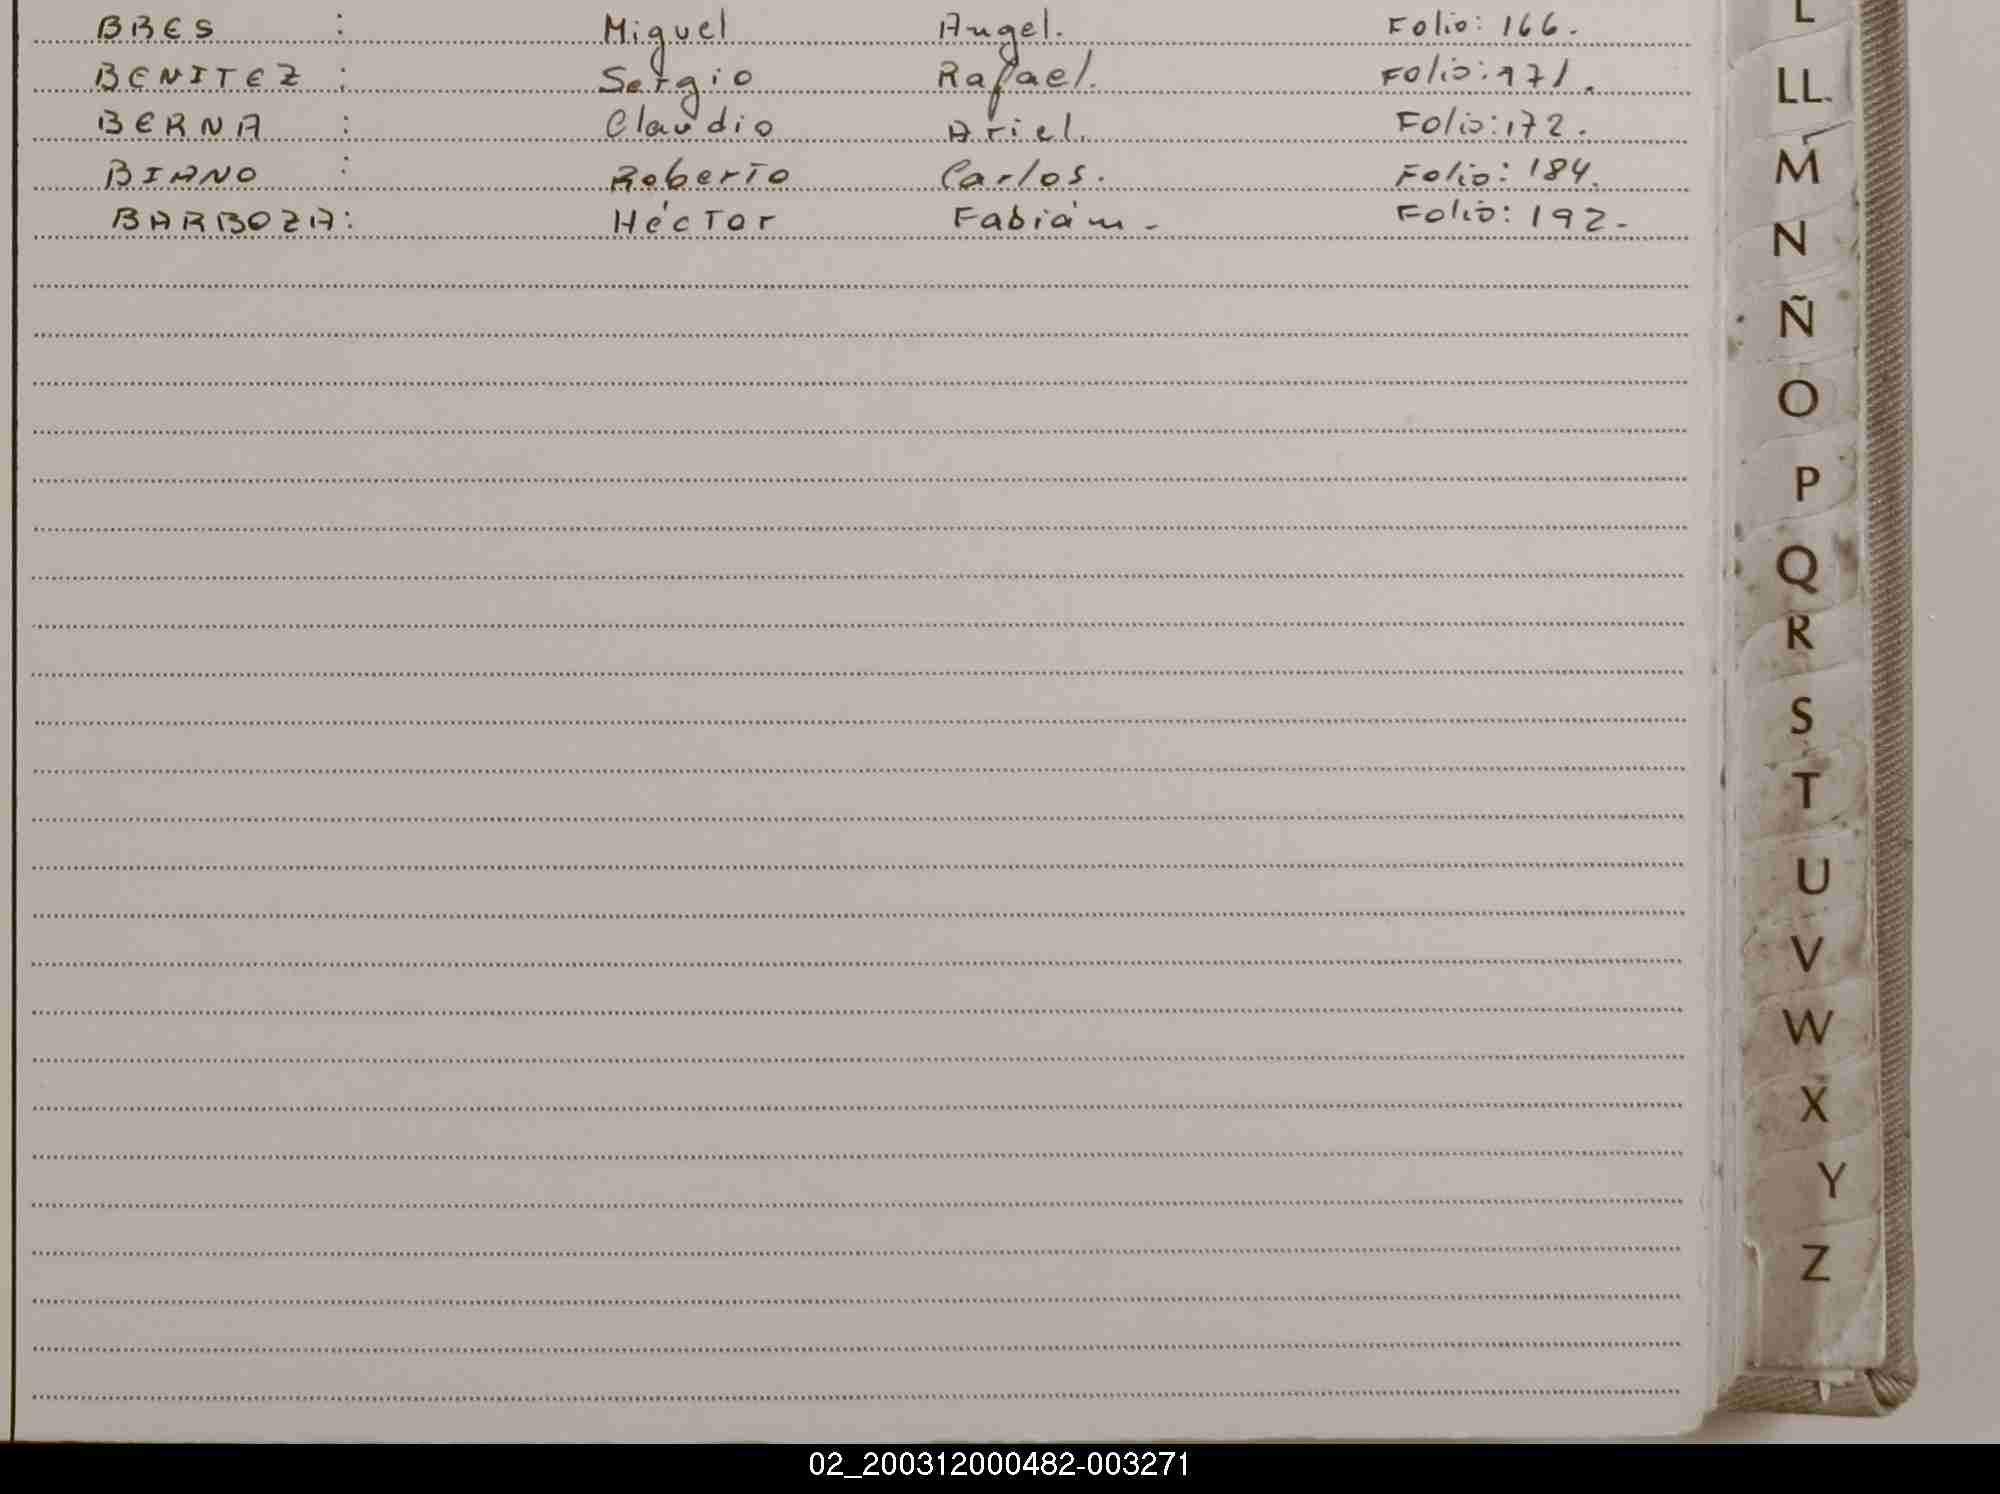 BRES : Miguel Angel. Folio: 166.
BENITEZ : Sergio Rafael. Folio: 171.
BERNA : Claudio Ariel. Folio: 172.
BIANO : Roberto Carlos. Folio: 184.
BARBOZA: Héctor Fabián - Folio: 192.-
L
LL
M
N
Ñ
O
P
Q
R
S
T
U
V
W
X
Y
Z
02_200312000482-003271